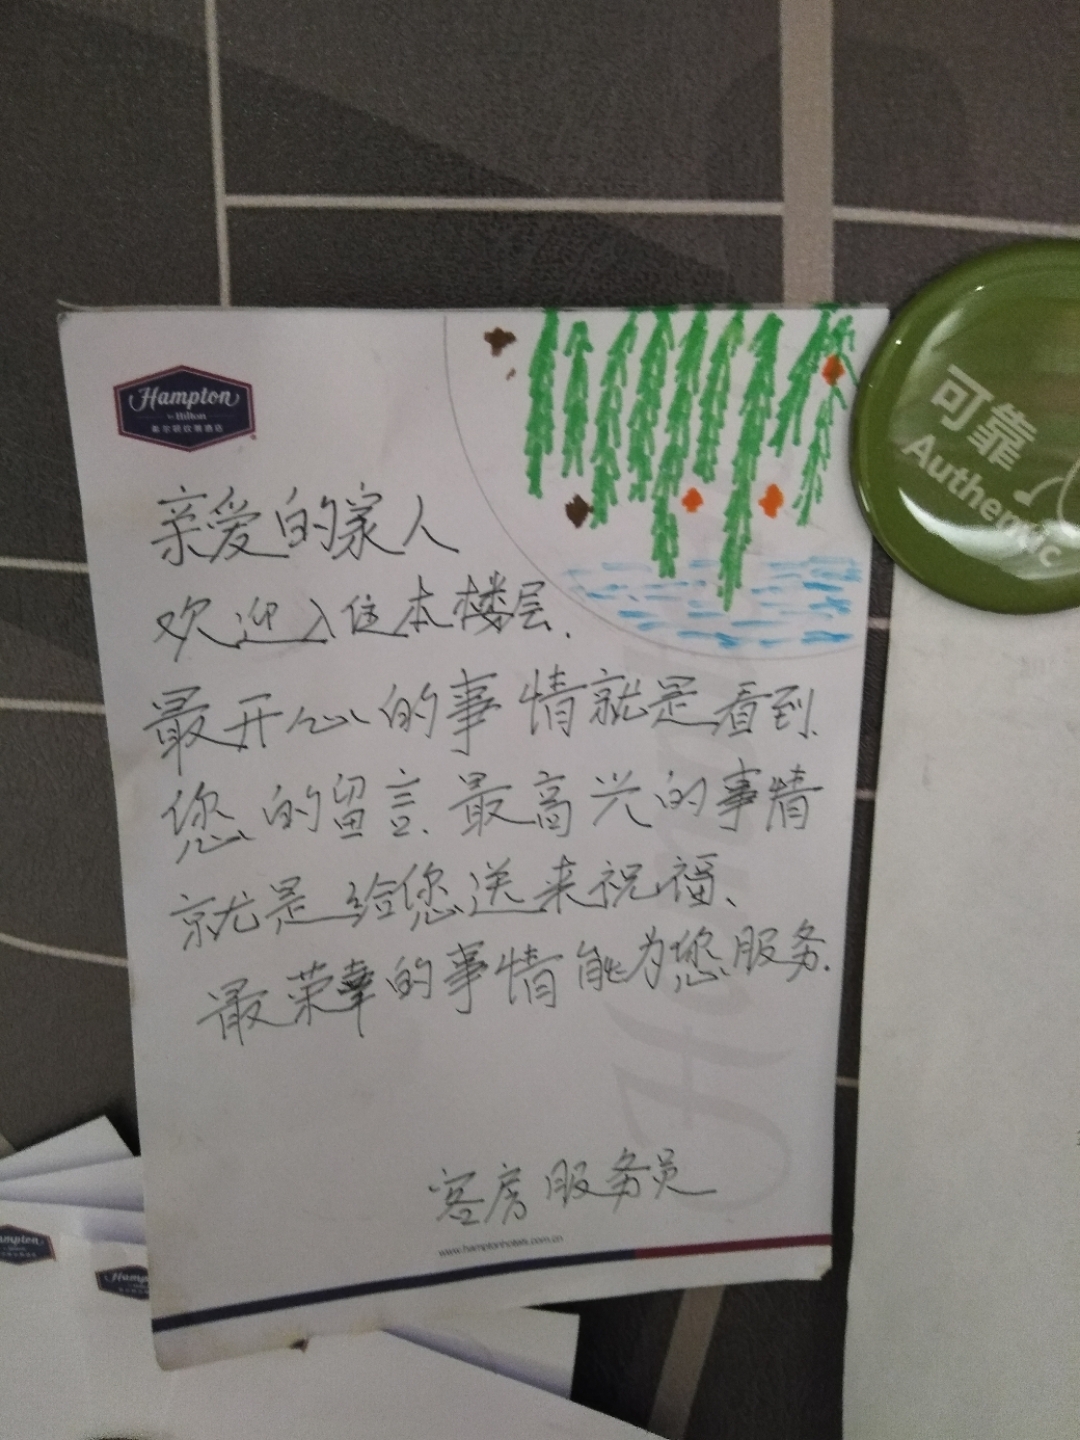 Hampton
by Hilton
希尔顿欢朋酒店
亲爱的家人
欢迎入住本楼层.
最开心的事情就是看到.
您的留言.最高兴的事情
就是给您送来祝福、
最荣幸的事情能为您服务.
客房服务员
www.hamptonhotels.com.cn
可靠
Authentic
Hampton